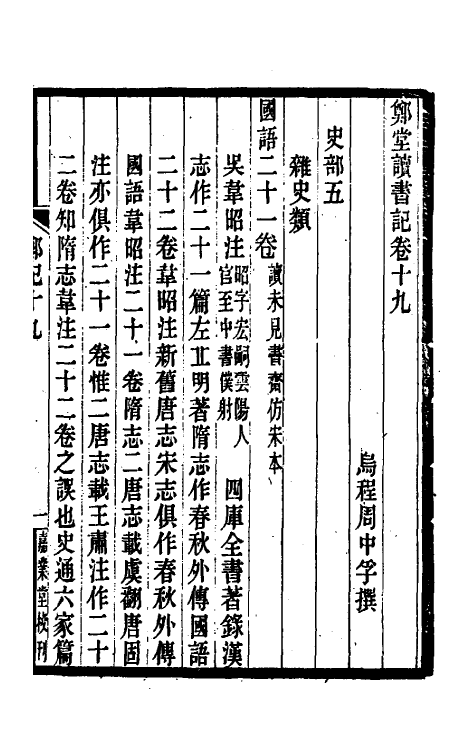 鄭堂讀書記卷十九
烏程周中孚撰
史部五
雜史類
國語二十一卷讀未見書齋仿宋本
吳韋昭注昭字宏嗣雲陽人官至中書僕射 四庫全書著錄漢
志作二十一篇左丘明著隋志作春秋外傳國語
二十二卷韋昭注新舊唐志宋志俱作春秋外傳
國語韋昭注二十一卷隋志二唐志載虞翻唐固
注亦俱作二十一卷惟二唐志載王肅注作二十
二卷知隋志韋注二十二卷之誤也史通六家篇
鄭記十九
一
嘉業堂校刊